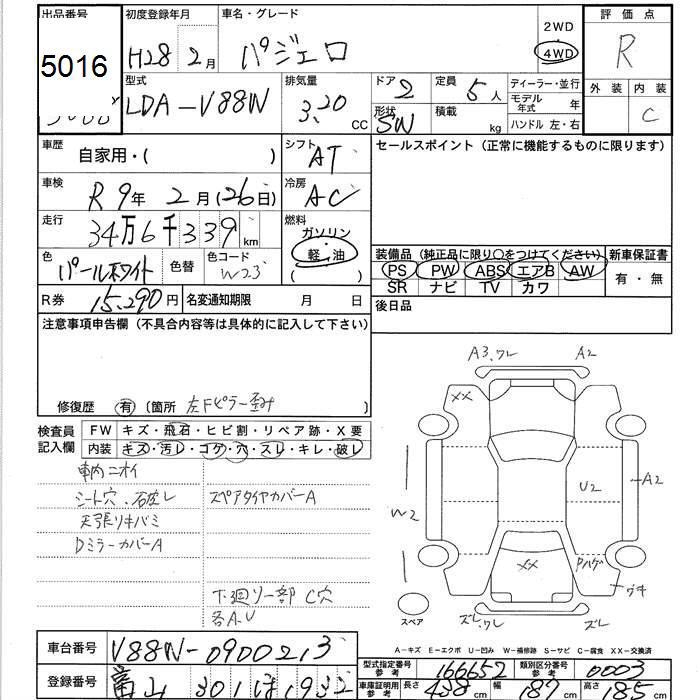 出品番号 初度登録年月 車名・グレード 2WD 評価点
5016 H28 2月 パジェロ 4WD R
型式 排気量 ドア 2 定員 5人 ディーラー・並行 外装 内装
LDA-V88W 3.20 CC 形状 SW 積載 kg モデル年式 年 C
ハンドル 左・右
車歴 自家用・( ) シフト AT セールスポイント (正常に機能するものに限ります)
車検 R9年 2月(26日) 冷房 AC
走行 34万6千339km 燃料 ガソリン 軽油 ( )
色 パールホワイト 色替 色コード W23
装備品 (純正品に限り○をつけてください) 新車保証書
PS PW ABS エアB AW 有・無
SR ナビ TV カワ
R券 15,290円 名変通知期限 月 日 後日品
注意事項申告欄 (不具合内容等は具体的に記入して下さい)
修復歴 有 (箇所 左Fピラー歪み )
検査員記入欄 FW キズ・飛石・ヒビ割・リペア跡・X要
内装 キズ・汚レ・コゲ・穴・スレ・キレ・破レ
車内ニオイ
シート穴、破レ スペアタイヤカバーA
天張リキバミ
DミラーカバーA
下廻リ一部C穴
各A.U
A3.ワレ A2
XX
A2
U2
W2
XX Pハゲ
ウキ
スペア ズレ.ワレ ズレ
A-キズ E-エクボ U-凹み W-補修跡 S-サビ C-腐食 XX-交換済
車台番号 V88W-0900213
型式指定番号参考 16652 類別区分番号参考 0003
登録番号 富山 301 ほ 1932
車庫証明用参考 長さ 438cm 幅 187cm 高さ 185cm